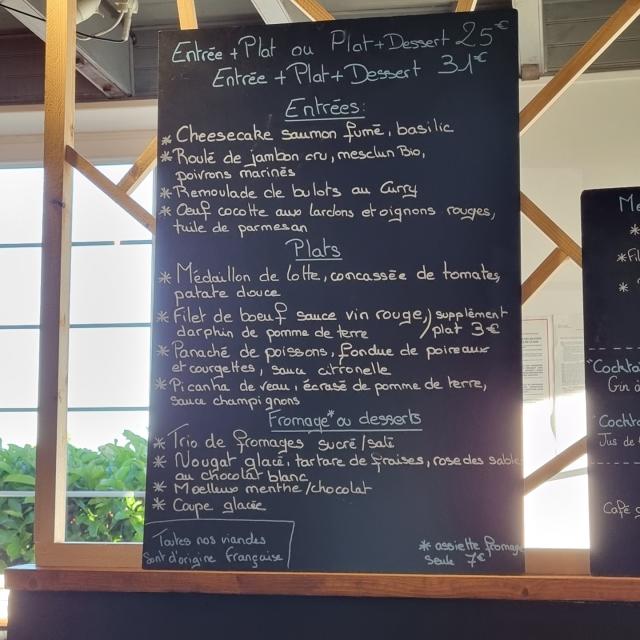 Entrée + Plat ou Plat + Dessert 25€
Entrée + Plat + Dessert 31€
Entrées:
* Cheesecake saumon fumé, basilic
* Roulé de jambon cru, mesclun Bio,
poivrons marinés
* Remoulade de bulots au Curry
* Œuf cocotte aux lardons et oignons rouges,
tuile de parmesan
Plats
* Médaillon de lotte, concassée de tomates,
patate douce
* Filet de boeuf sauce vin rouge, ) supplément
darphin de pomme de terre plat 3€
* Panaché de poissons, fondue de poireaux
et courgettes, sauce citronelle
* Picanha de veau, écrasé de pomme de terre,
sauce champignons
Fromage* ou desserts
* Trio de fromages sucré/salé
* Nougat glacé, tartare de fraises, rose des sable
au chocolat blanc
* Moelleux menthe/chocolat
* Coupe glacée
Toutes nos viandes
sont d'origine française
* assiette fromage
seule 7€
Me
*
* Fil
*
Cockta
Gin à
Cockta
Jus de
Café g